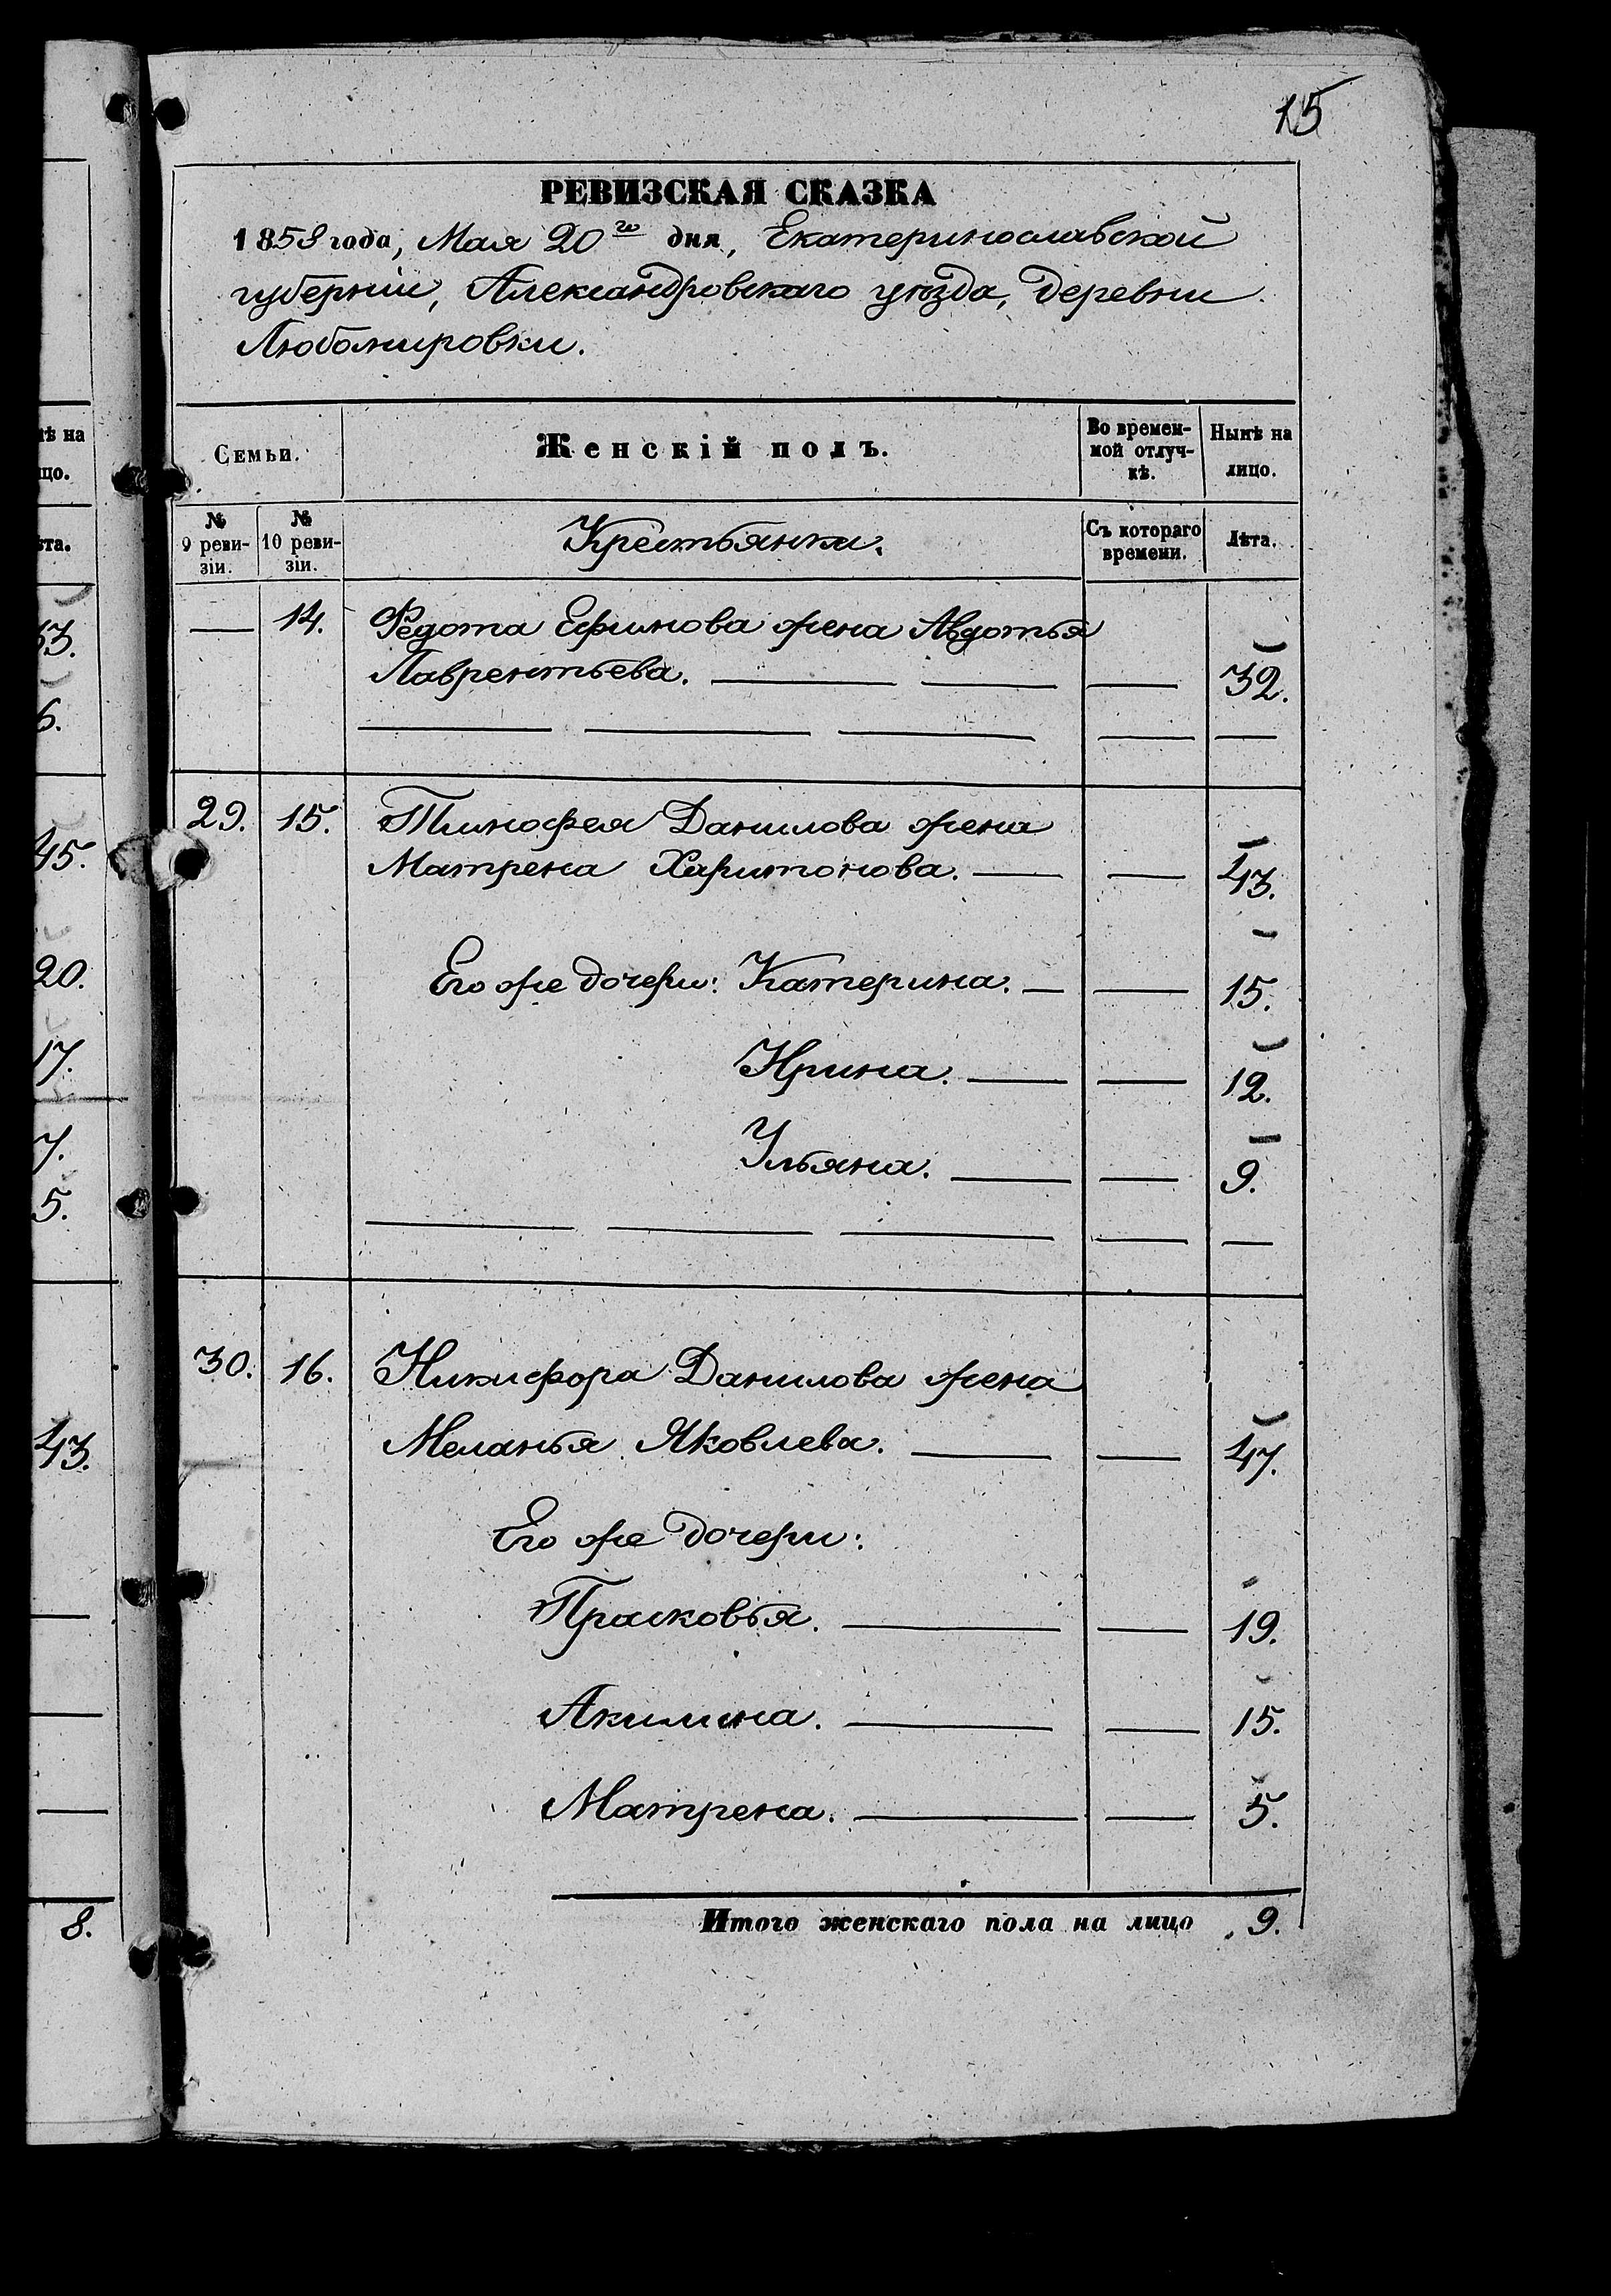 15
РЕВИЗСКАЯ СКАЗКА
1858 года, Мая 20го дня, Екатеринославской
губерніи, Александровскаго уѣзда, деревни
Любомировки.
ѣ на
Семьи.
Женскій полъ.
Во времен-
ной отлуч-
кѣ.
Нынѣ на
лицо.
цо.
та.
№
9 реви-
зіи.
№
10 реви-
зіи.
Крестьянки.
Съ котораго
времени.
Лѣта.
— 14. Федота Ефимова жена Авдотья
Лаврентьева. — — — 32.
29. 15. Тимофея Данилова жена
45.
Матрена Харитонова. — — 43.
20.
Его же дочери: Катерина. — — 15.
17.
Ирина. — — 12.
7.
Ульяна. — — 9.
5.
30. 16. Никифора Данилова жена
43.
Меланья Яковлева. — — 47.
Его же дочери:
Прасковья. — — 19.
Акилина. — — 15.
Матрена. — — 5.
8.
Итого женскаго пола на лицо 9.